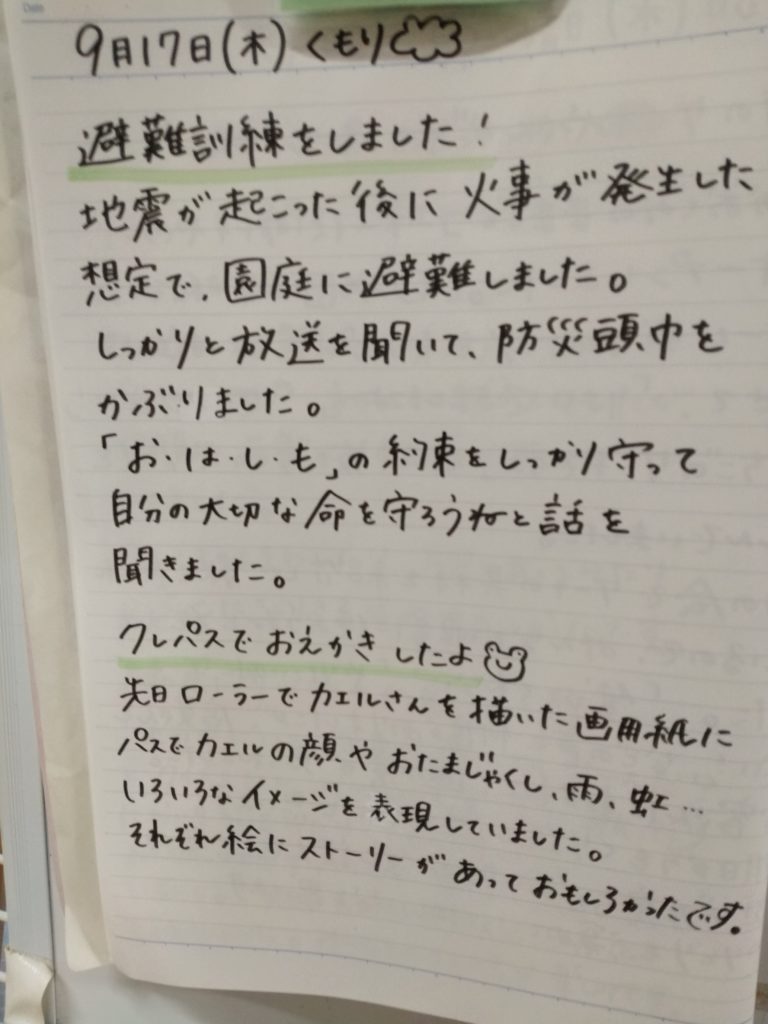 9月17日(木) くもり
避難訓練をしました!
地震が起こった後に火事が発生した
想定で、園庭に避難しました。
しっかりと放送を聞いて、防災頭巾を
かぶりました。
「お・は・し・も」の約束をしっかり守って
自分の大切な命を守ろうねと話を
聞きました。
クレパスでおえかきしたよ
先日ローラーでカエルさんを描いた画用紙に
パスでカエルの顔やおたまじゃくし、雨、虹…
いろいろなイメージを表現していました。
それぞれ絵にストーリーがあっておもしろかったです。